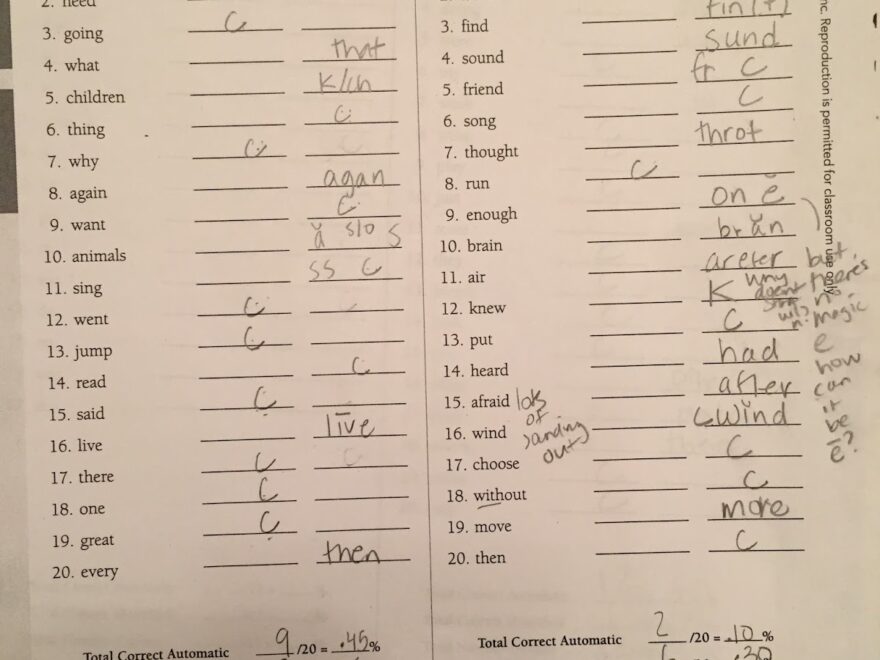 2. need
3. going C
4. what that
5. children k/ch
6. thing C
7. why C
8. again agan
9. want C
10. animals ă slo s
11. sing ss C
12. went C
13. jump C
14. read C
15. said C
16. live līve
17. there C
18. one C
19. great C
20. every then
Total Correct Automatic 9 /20 = .45%
3. find
4. sound sund
5. friend fr C
6. song C
7. thought throt
8. run C
9. enough on ē
10. brain brăn
11. air areter
12. knew K why doesn't
13. put C
14. heard had
15. afraid after
lots of sounding out
16. wind C wĭnd
17. choose C
18. without C
19. move more
20. then C
but there's no magic e how can it be ē?
Total Correct Automatic 2 /20 = .10%
.30
nc. Reproduction is permitted for classroom use only.